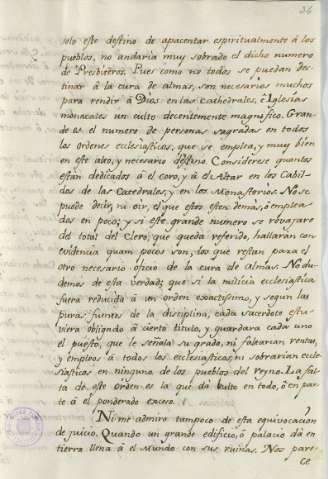 26
solo este destino de apacentar espiritualmente à los
pueblos, no andaria muy sobrado el dicho numero
de Presbiteros. Pues como no todos se puedan des-
tinar à la cura de almas, son necesarios muchos
para rendir à Dios en las Cathedrales, è Iglesias
monacales un culto decentemente magnifico. Gran-
de es el numero de personas sagradas en todos
los ordenes eclesiasticos, que se emplea, y muy bien
en este alto, y necesario destino. Considerese quantos
estàn dedicados à el coro, y à el Altar en los Cabil-
dos de las Catedrales, y en los Monasterios. No se
puede decir, ni oir, el que estos esten demas, ò emplea-
dos en poco; y si este grande numero se rebajare
del total del Clero, que queda referido, hallaràn con
evidencia quam pocos son, los que restan para el
otro necesario oficio de la cura de Almas. No du-
demos de esta verdad; que si la milicia eclesiastica
fuera reducida à un orden exactisimo, y segun las
puras fuentes de la disciplina, cada sacerdote estu-
viera obligado à cierto titulo, y guardara cada uno
el puesto, que le señala su grado, ni faltarian rentas,
y empleos à todos los eclesiasticos; ni sobrarian ecle-
siasticos en ninguno de los pueblos del reyno. La fal-
ta de este orden es la que dà bulto en todo, ò en par-
te à el ponderado exceso.
Ni me admiro tampoco de esta equivocacion
de juicio. Quando un grande edificio, ò palacio dà en
tierra llena à el Mundo con sus ruinas. Nos pare-
ce